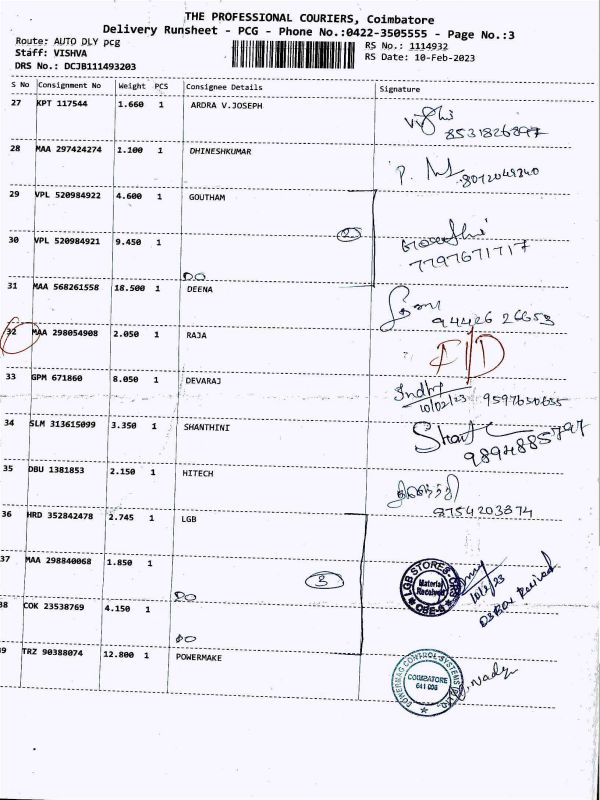 THE PROFESSIONAL COURIERS, Coimbatore
Delivery Runsheet - PCG - Phone No.:0422-3505555 - Page No.:3
Route: AUTO DLY pcg
RS No.: 1114932
Staff: VISHVA
RS Date: 10-Feb-2023
DRS No.: DCJB111493203
S No Consignment No Weight PCS Consignee Details Signature
27 KPT 117544 1.660 1 ARDRA V.JOSEPH
8531826897
28 MAA 297424274 1.100 1 DHINESHKUMAR
8072049340
29 VPL 520984922 4.600 1 GOUTHAM
2
30 VPL 520984921 9.450 1
7797671717
DO
31 MAA 568261558 18.500 1 DEENA
94426 26653
32 MAA 298054908 2.050 1 RAJA
33 GPM 671860 8.050 1 DEVARAJ
10/02/23 9597650655
34 SLM 313615099 3.350 1 SHANTHINI
9894885797
35 DBU 1381853 2.150 1 HITECH
8754203374
36 HRD 352842478 2.745 1 LGB
37 MAA 298840068 1.850 1
3
LGB STORES
Material Received
10/2/23
DO
38 COK 23538769 4.150 1
DO
39 TRZ 90388074 12.800 1 POWERMAKE
POWERMAG CONTROL SYSTEMS
COIMBATORE
641 006